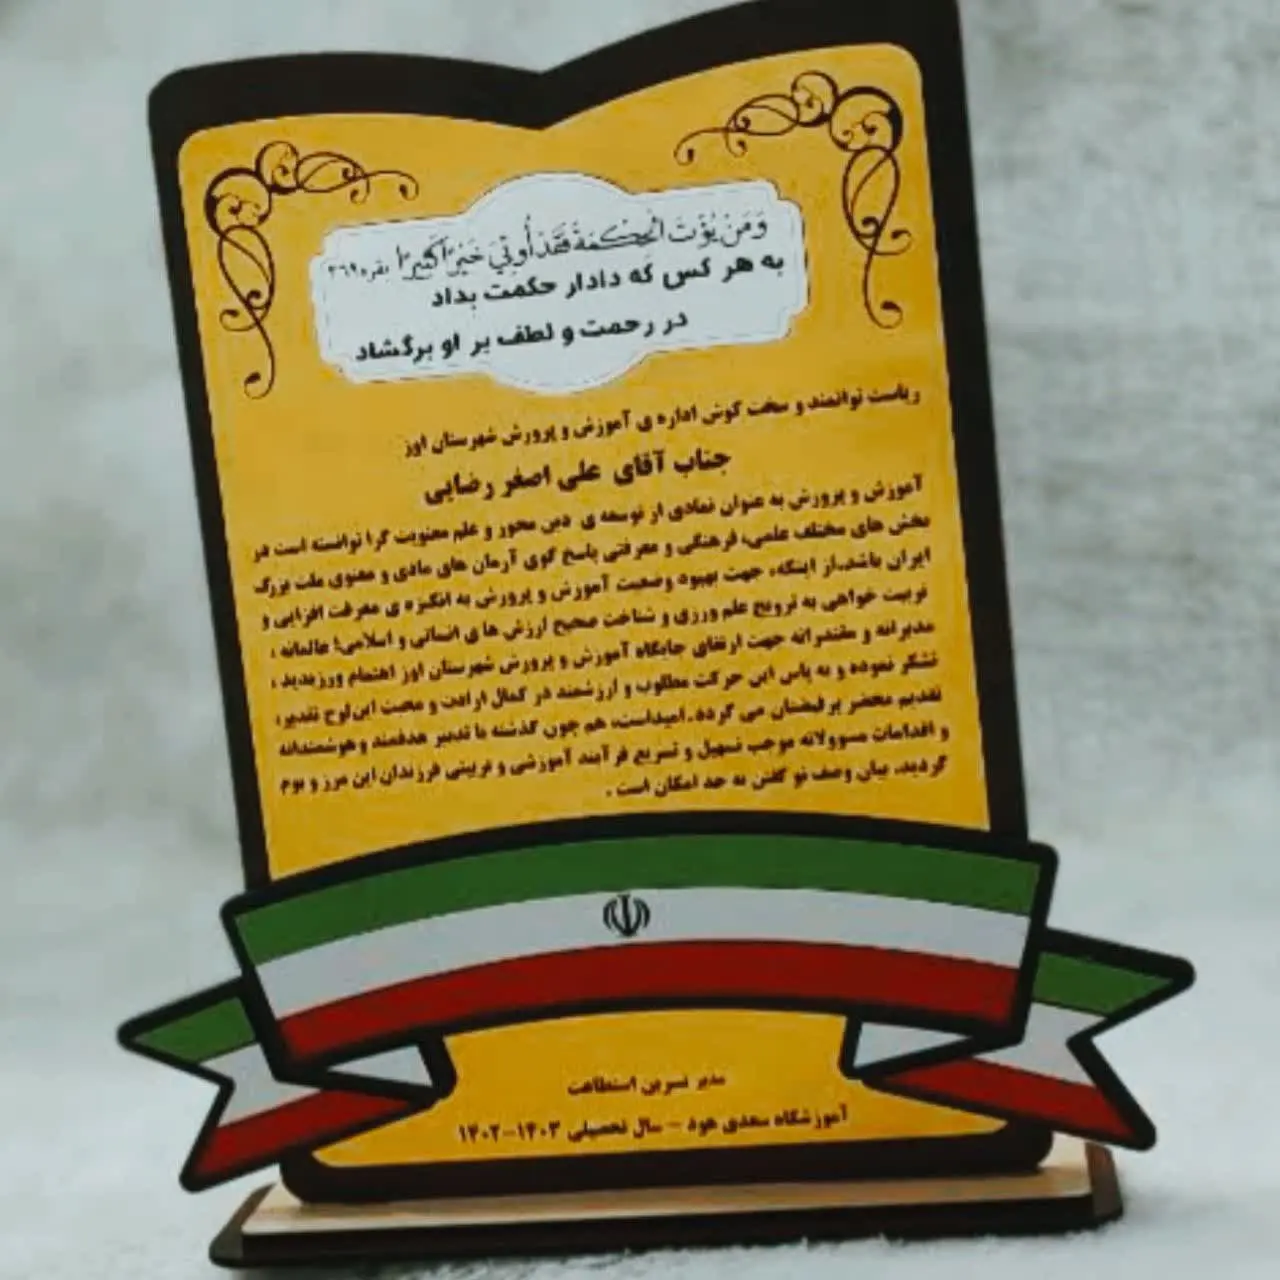 وَمَنْ يُؤْتَ الْحِكْمَةَ فَقَدْ أُوتِيَ خَيْرًا كَثِيرًا بقره ۲۶۹
به هر کس که دادار حکمت بداد
در رحمت و لطف بر او برگشاد
ریاست توانمند و سخت کوش اداره ی آموزش و پرورش شهرستان اوز
جناب آقای علی اصغر رضایی
آموزش و پرورش به عنوان نمادی از توسعه ی دین محور و علم معنویت گرا توانسته است در
بخش های مختلف علمی، فرهنگی و معرفتی پاسخ گوی آرمان های مادی و معنوی ملت بزرگ
ایران باشد.از اینکه، جهت بهبود وضعیت آموزش و پرورش به انگیزه ی معرفت افزایی و
تربیت خواهی به ترویج علم ورزی و شناخت صحیح ارزش های انسانی و اسلامی؛ عالمانه ،
مدیرانه و مقتدرانه جهت ارتقای جایگاه آموزش و پرورش شهرستان اوز اهتمام ورزیدید ،
تشکر نموده و به پاس این حرکت مطلوب و ارزشمند در کمال ارادت و محبت این لوح تقدیر،
تقدیم محضر پرفیضتان می گردد.امیداست، هم چون گذشته با تدبیر هدفمند و هوشمندانه
و اقدامات مسوولانه موجب تسهیل و تسریع فرآیند آموزشی و تربیتی فرزندان این مرز و بوم
گردید. بیان وصف تو گفتن نه حد امکان است .
مدیر نسرین استطاعت
آموزشگاه سعدی هود - سال تحصیلی ۱۴۰۳-۱۴۰۲